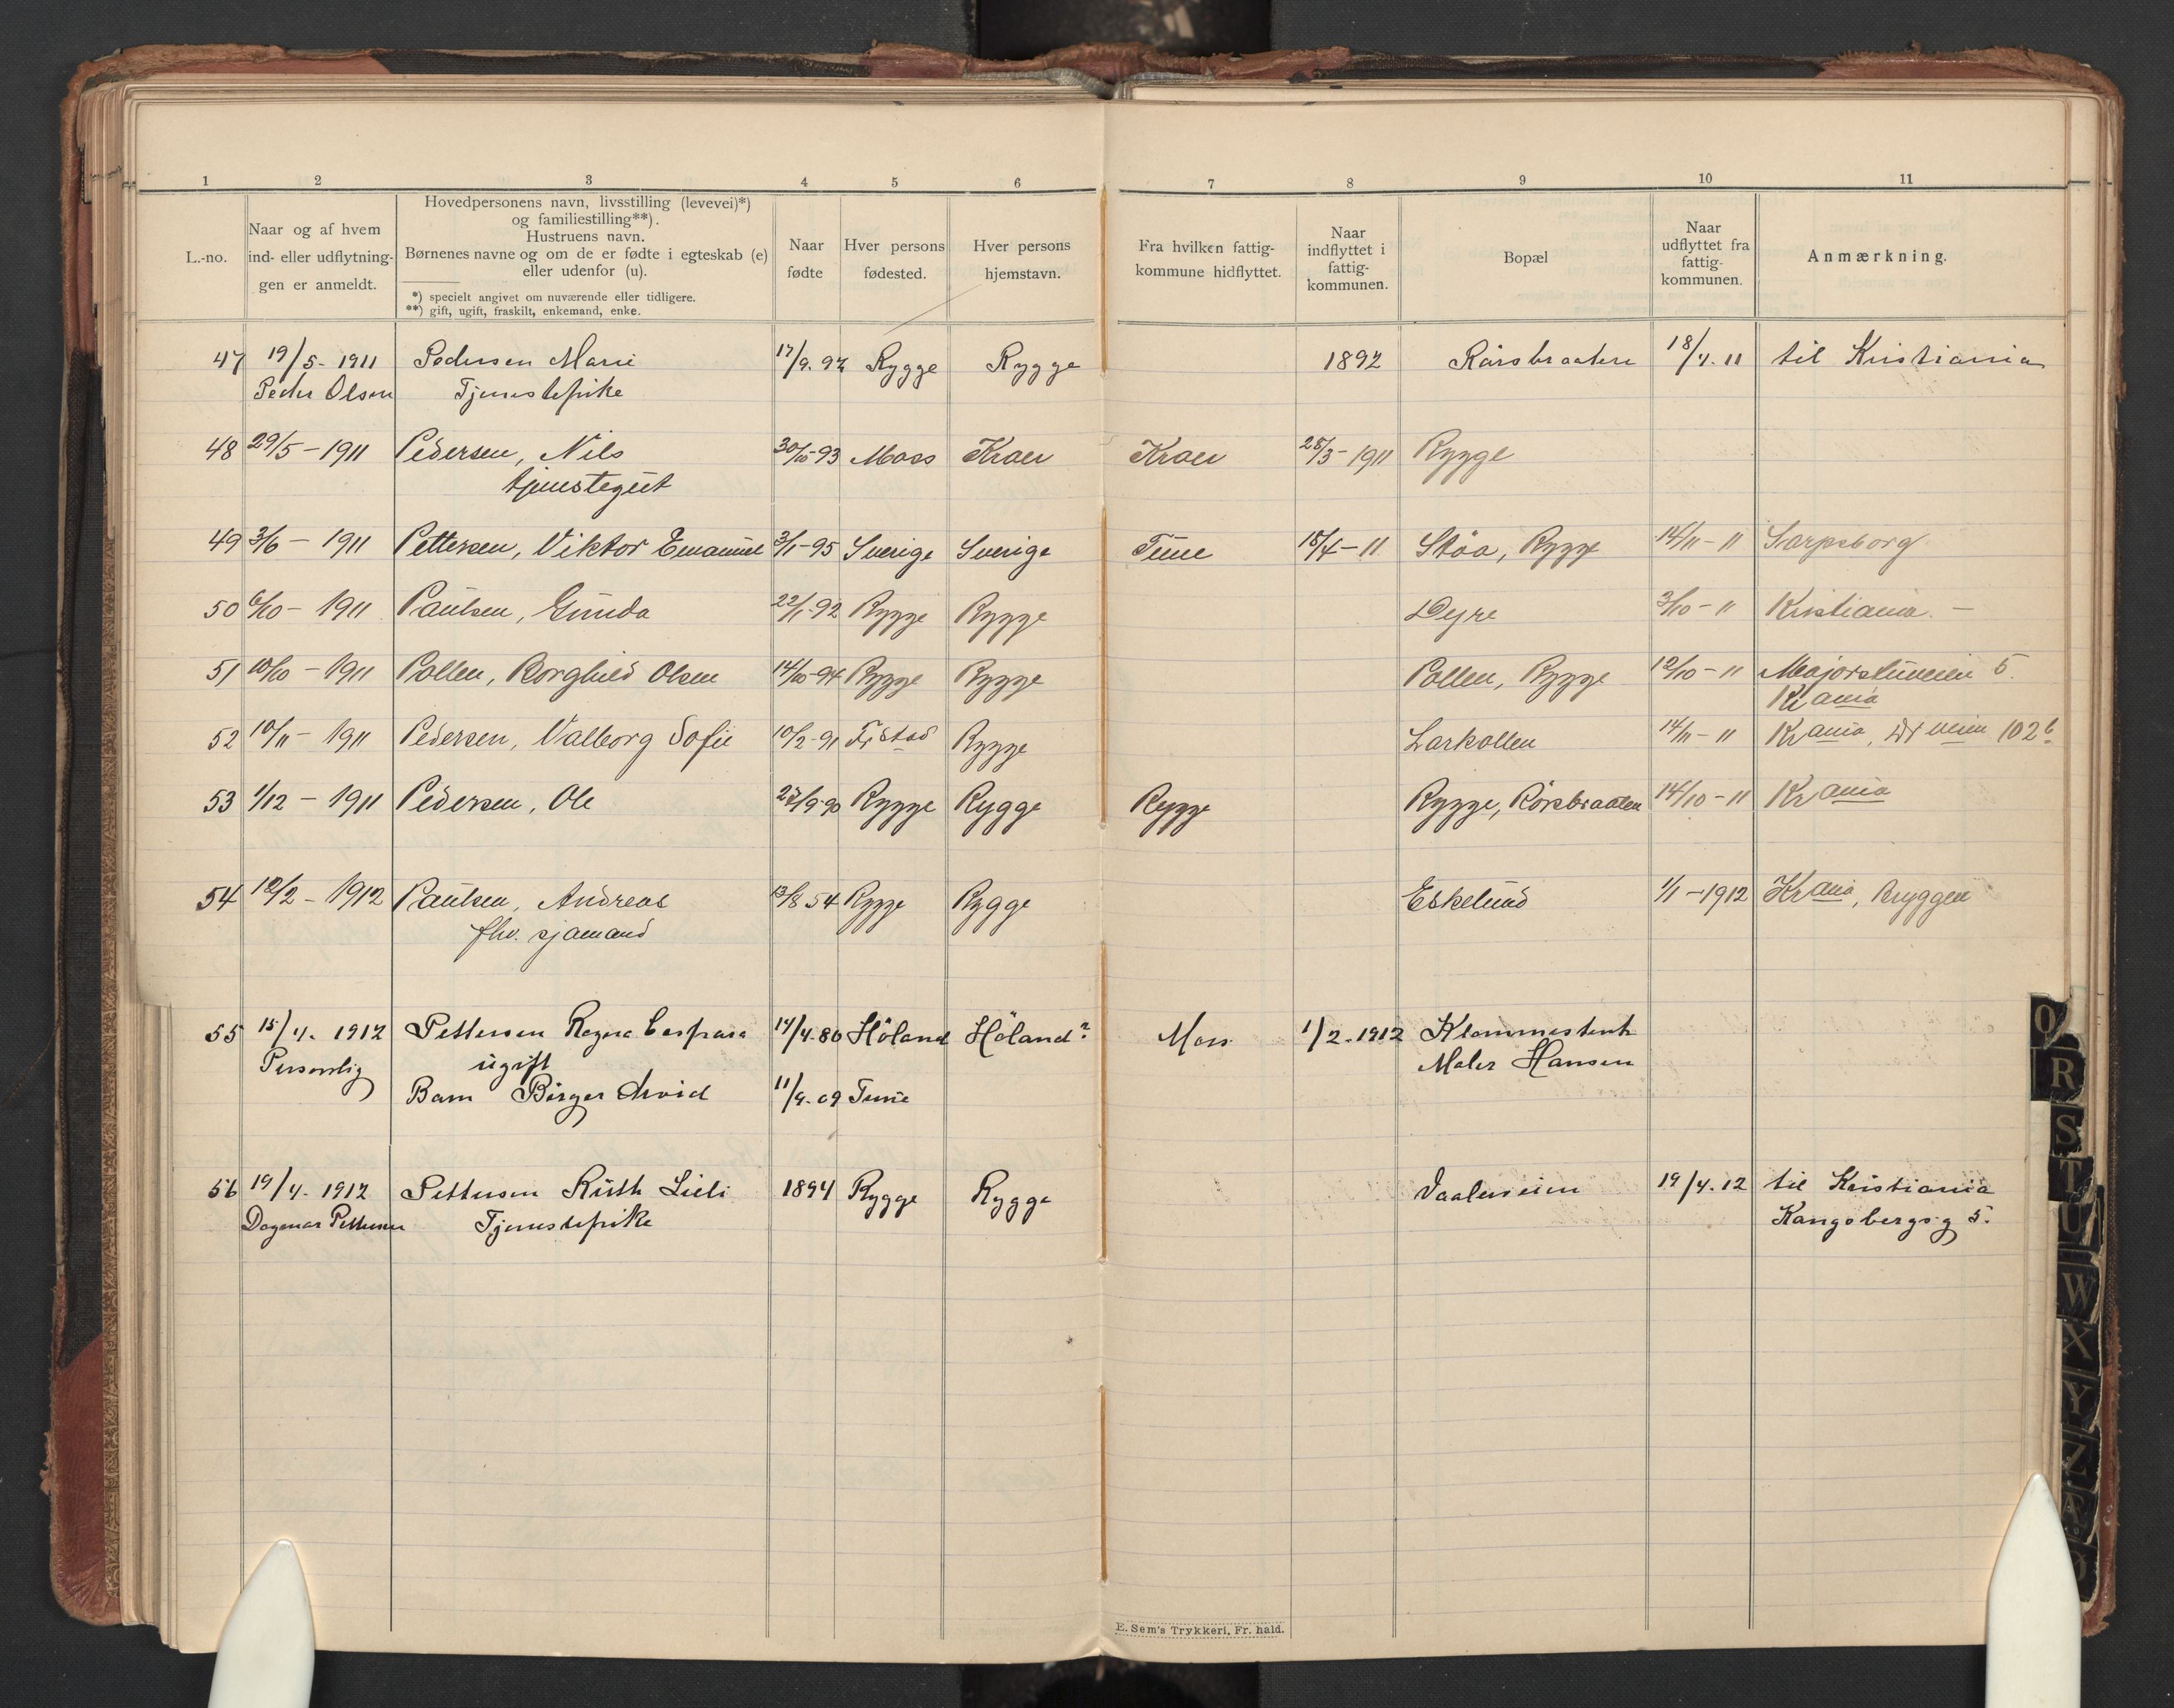 1 2 3 4 5 6 7 8 9 10 11
L.-no.
Naar og af hvem
ind- eller udflytnin-
gen er anmeldt.
Hovedpersonens navn, livsstilling (levevei)*)
og familiestilling**).
Hustruens navn.
Børnenes navne og om de er fødte i egteskab (e)
eller udenfor (u).
*) specielt angivet om nuværende eller tidligere.
**) gift, ugift, fraskilt, enkemand, enke.
Naar
fødte
Hver persons
fødested.
Hver persons
hjemstavn.
Fra hvilken fattig-
kommune hidflyttet.
Naar
indflyttet i
fattig-
kommunen.
Bopæl
Naar
udflyttet fra
fattig-
kommunen.
Anmærkning.
47 19/5-1911 Pedersen Marie 17/9.92 Rygge Rygge 1892 Rörsbraaten 18/4.11 til Kristiania
Peder Olsen Tjenestepike
48 29/5-1911 Pedersen, Nils 30/10-93 Moss Kraer Kraer 28/3-1911 Rygge
tjenstegut
49 3/6 - 1911 Pettersen, Viktor Emanuel 3/1-95 Sverige Sverige Tune 18/4-11 Stöa, Rygge 14/11-11 Sarpsborg
50 6/10 - 1911 Paulsen, Gunda 22/1-92 Rygge Rygge Dyre 3/10-11 Kristiania. -
51 10/10 - 1911 Pollen, Borghild Olsen 14/10-94 Rygge Rygge Pollen, Rygge 12/10-11 Majorstuveien 5.
Krania
52 10/11 - 1911 Pedersen, Valborg Sofie 10/2-91 Frstad Rygge Larkollen 14/11-11 Krania, Drveien 102b
53 1/12 - 1911 Pedersen, Ole 27/9-90 Rygge Rygge Rygge Rygge, Rörsbraaten 14/10-11 Krania
54 12/2 - 1912 Paulsen, Andreas 13/8 54 Rygge Rygge Eskelund 1/1-1912 Krania, Bryggen
fhv. sjömand
55 15/4. 1912 Pettersen Ragna Caspara 14/4.80 Höland Höland? Moss 1/2.1912 Klommestenh
Personlig ugift Maler Hansen
Barn Birger Arvid 11/9.09 Tune
56 19/4. 1912 Pettersen Ruth Lieli 1894 Rygge Rygge Vaalerveien 19/4.12 til Kristiania
Dagmar Pettersen Tjenestepike Kongsbergsg 5.
E. Sem's Trykkeri, Fr. hald.
O
R
S
T
U
W
X
Y
Z
Æ
Ø